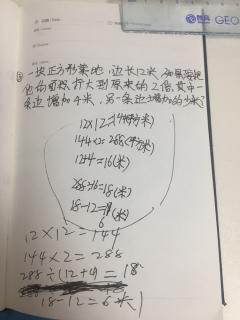 GEO
一块正方形菜地，边长12米，如果要把
他的面积扩大到原来的2倍，其中一
条边增加4米，另一条边增加多少米？
12×12=144(平方米)
144×2=288(平方米)
12+4=16(米)
288÷16=18(米)
18-12=
6(米)
12×12=144
144×2=288
288÷(12+4)=18
18-12=6米